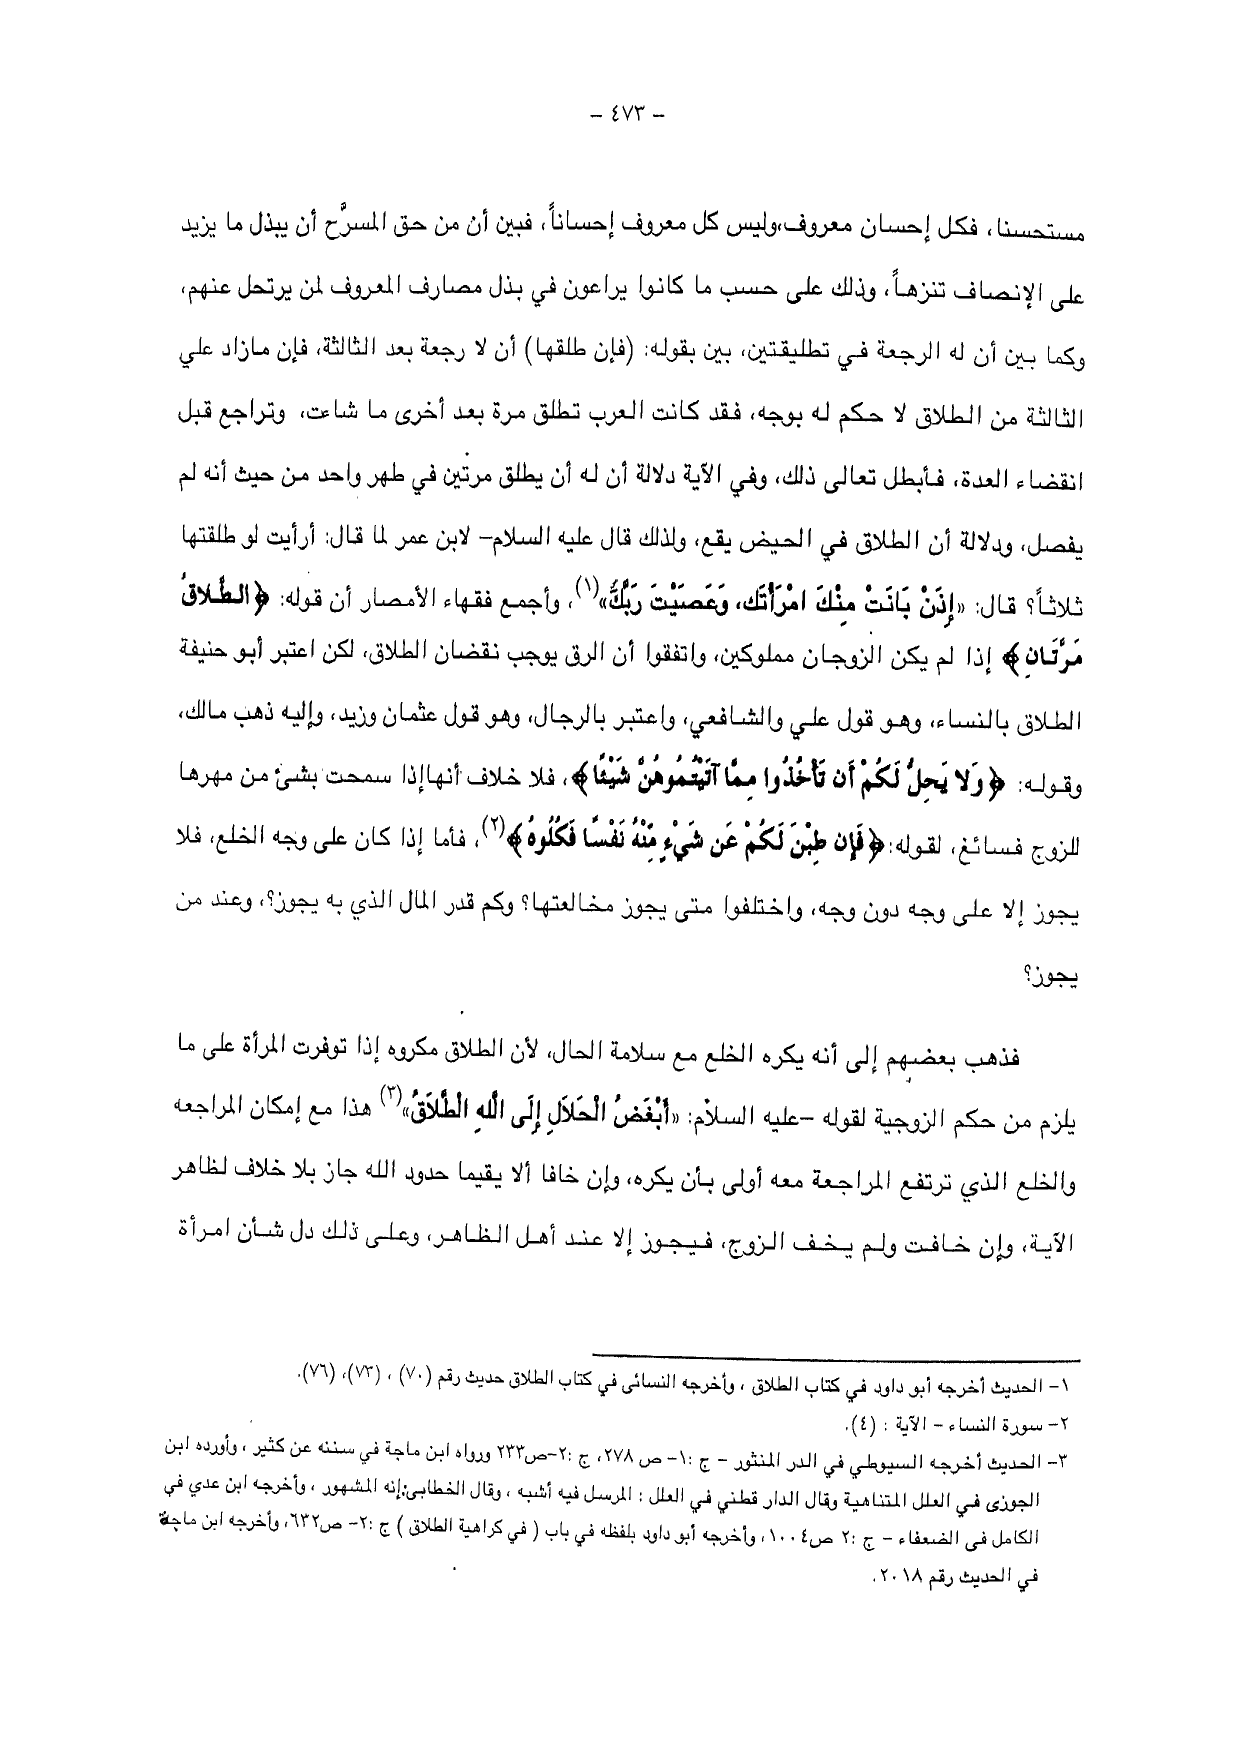 - ٤٧٣ -
مستحسنا، فكل إحسان معروف،وليس كل معروف إحساناً، فبين أن من حق المسرَّح أن يبذل ما يزيد
على الإنصاف تنزهاً، وذلك على حسب ما كانوا يراعون في بذل مصارف المعروف لمن يرتحل عنهم،
وكما بين أن له الرجعة في تطليقتين، بين بقوله: (فإن طلقها) أن لا رجعة بعد الثالثة، فإن مازاد علي
الثالثة من الطلاق لا حكم له بوجه، فقد كانت العرب تطلق مرة بعد أخرى ما شاءت، وتراجع قبل
انقضاء العدة، فأبطل تعالى ذلك، وفي الآية دلالة أن له أن يطلق مرتين في طهر واحد من حيث أنه لم
يفصل، ودلالة أن الطلاق في الحيض يقع، ولذلك قال عليه السلام- لابن عمر لما قال: أرأيت لو طلقتها
ثلاثاً؟ قال: «إِذَنْ بَانَتْ مِنْكَ امْرَأَتَك، وَعَصَيْتَ رَبَّكُ»(١)، وأجمع فقهاء الأمصار أن قوله: ﴿الطَّلاقُ
مَرَّتَانِ﴾ إذا لم يكن الزوجان مملوكين، واتفقوا أن الرق يوجب نقضان الطلاق، لكن اعتبر أبو حنيفة
الطلاق بالنساء، وهو قول علي والشافعي، واعتبر بالرجال، وهو قول عثمان وزيد، وإليه ذهب مالك،
وقوله: ﴿وَلا يَحِلُّ لَكُمْ أَن تَأْخُذُوا مِمَّا آتَيْتُمُوهُنَّ شَيْئًا﴾، فلا خلاف أنهاإذا سمحت بشئ من مهرها
للزوج فسائغ، لقوله:﴿فَإِن طِبْنَ لَكُمْ عَن شَيْءٍ مِنْهُ نَفْسًا فَكُلُوهُ﴾(٢)، فأما إذا كان على وجه الخلع، فلا
يجوز إلا على وجه دون وجه، واختلفوا متى يجوز مخالعتها؟ وكم قدر المال الذي به يجوز؟، وعند من
يجوز؟
فذهب بعضهم إلى أنه يكره الخلع مع سلامة الحال، لأن الطلاق مكروه إذا توفرت المرأة على ما
يلزم من حكم الزوجية لقوله -عليه السلام: «أَبْغَضُ الْحَلَالِ إِلَى اللهِ الطَّلَاقُ»(٣) هذا مع إمكان المراجعه
والخلع الذي ترتفع المراجعة معه أولى بأن يكره، وإن خافا ألا يقيما حدود الله جاز بلا خلاف لظاهر
الآية، وإن خافت ولم يخف الزوج، فيجوز إلا عند أهل الظاهر، وعلى ذلك دل شأن امرأة
١- الحديث أخرجه أبو داود في كتاب الطلاق ، وأخرجه النسائى في كتاب الطلاق حديث رقم (٧٠) ، (٧٣)، (٧٦).
٢- سورة النساء - الآية : (٤).
٣- الحديث أخرجه السيوطي في الدر المنثور - ج :١- ص ٢٧٨، ج :٢-ص٢٣٣ ورواه ابن ماجة في سننه عن كثير ، وأورده ابن
الجوزى في العلل المتناهية وقال الدار قطني في العلل : المرسل فيه أشبه ، وقال الخطابى:إنه المشهور ، وأخرجه ابن عدي في
الكامل فى الضعفاء - ج :٢ ص١٠٠٤، وأخرجه أبو داود بلفظه في باب ( في كراهية الطلاق ) ج :٢- ص٦٣٢، وأخرجه ابن ماجة
في الحديث رقم ٢٠١٨.